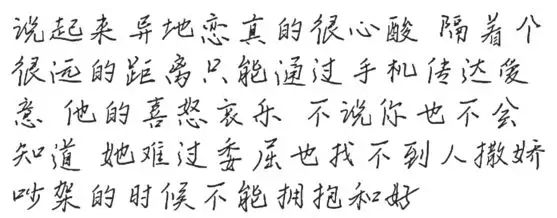 说起来异地恋真的很心酸 隔着个
很远的距离只能通过手机传达爱
意 他的喜怒哀乐 不说你也不会
知道 她难过委屈也找不到人撒娇
吵架的时候不能拥抱和好